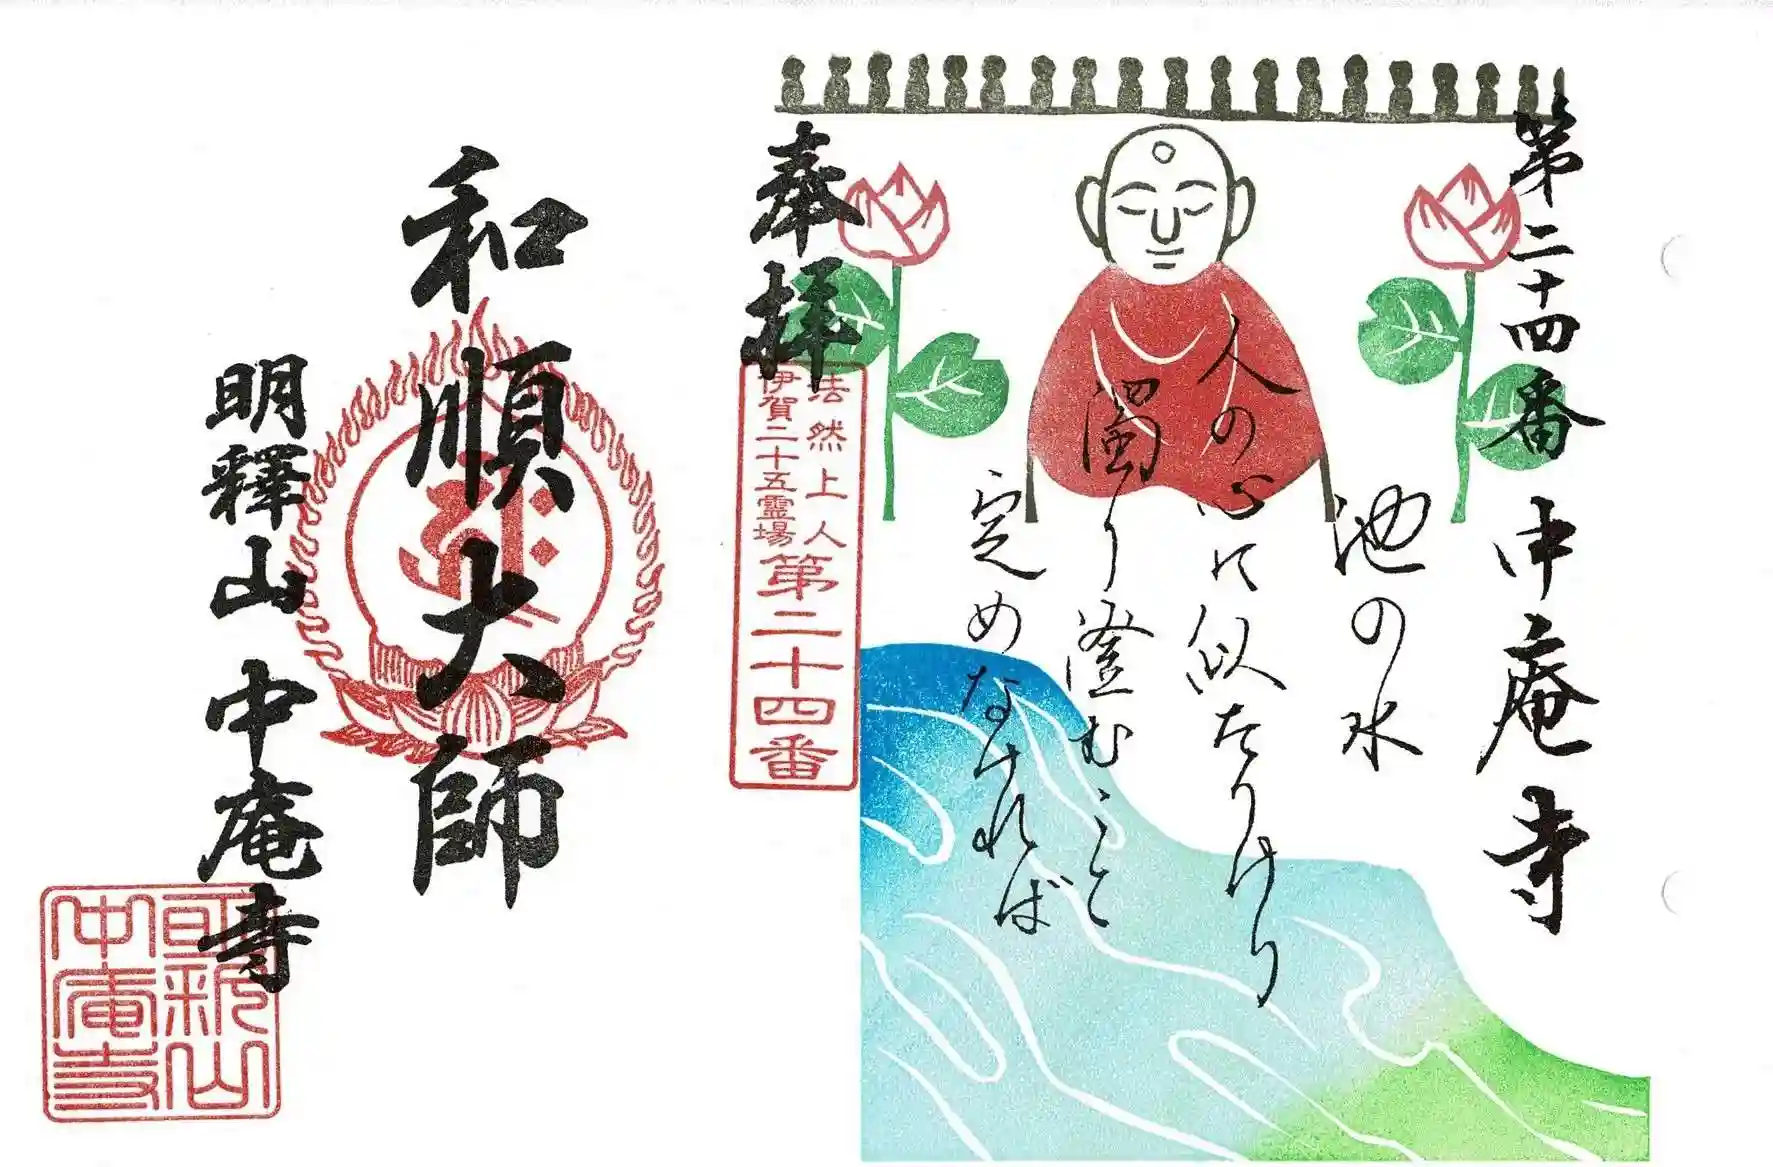 第二十四番 中庵寺
池の水
人の心に似たりけり
濁り澄むこと
定めなければ
奉拝
法然上人
伊賀二十五霊場
第二十四番
和順大師
明釋山 中庵寺
明釈山
中庵寺